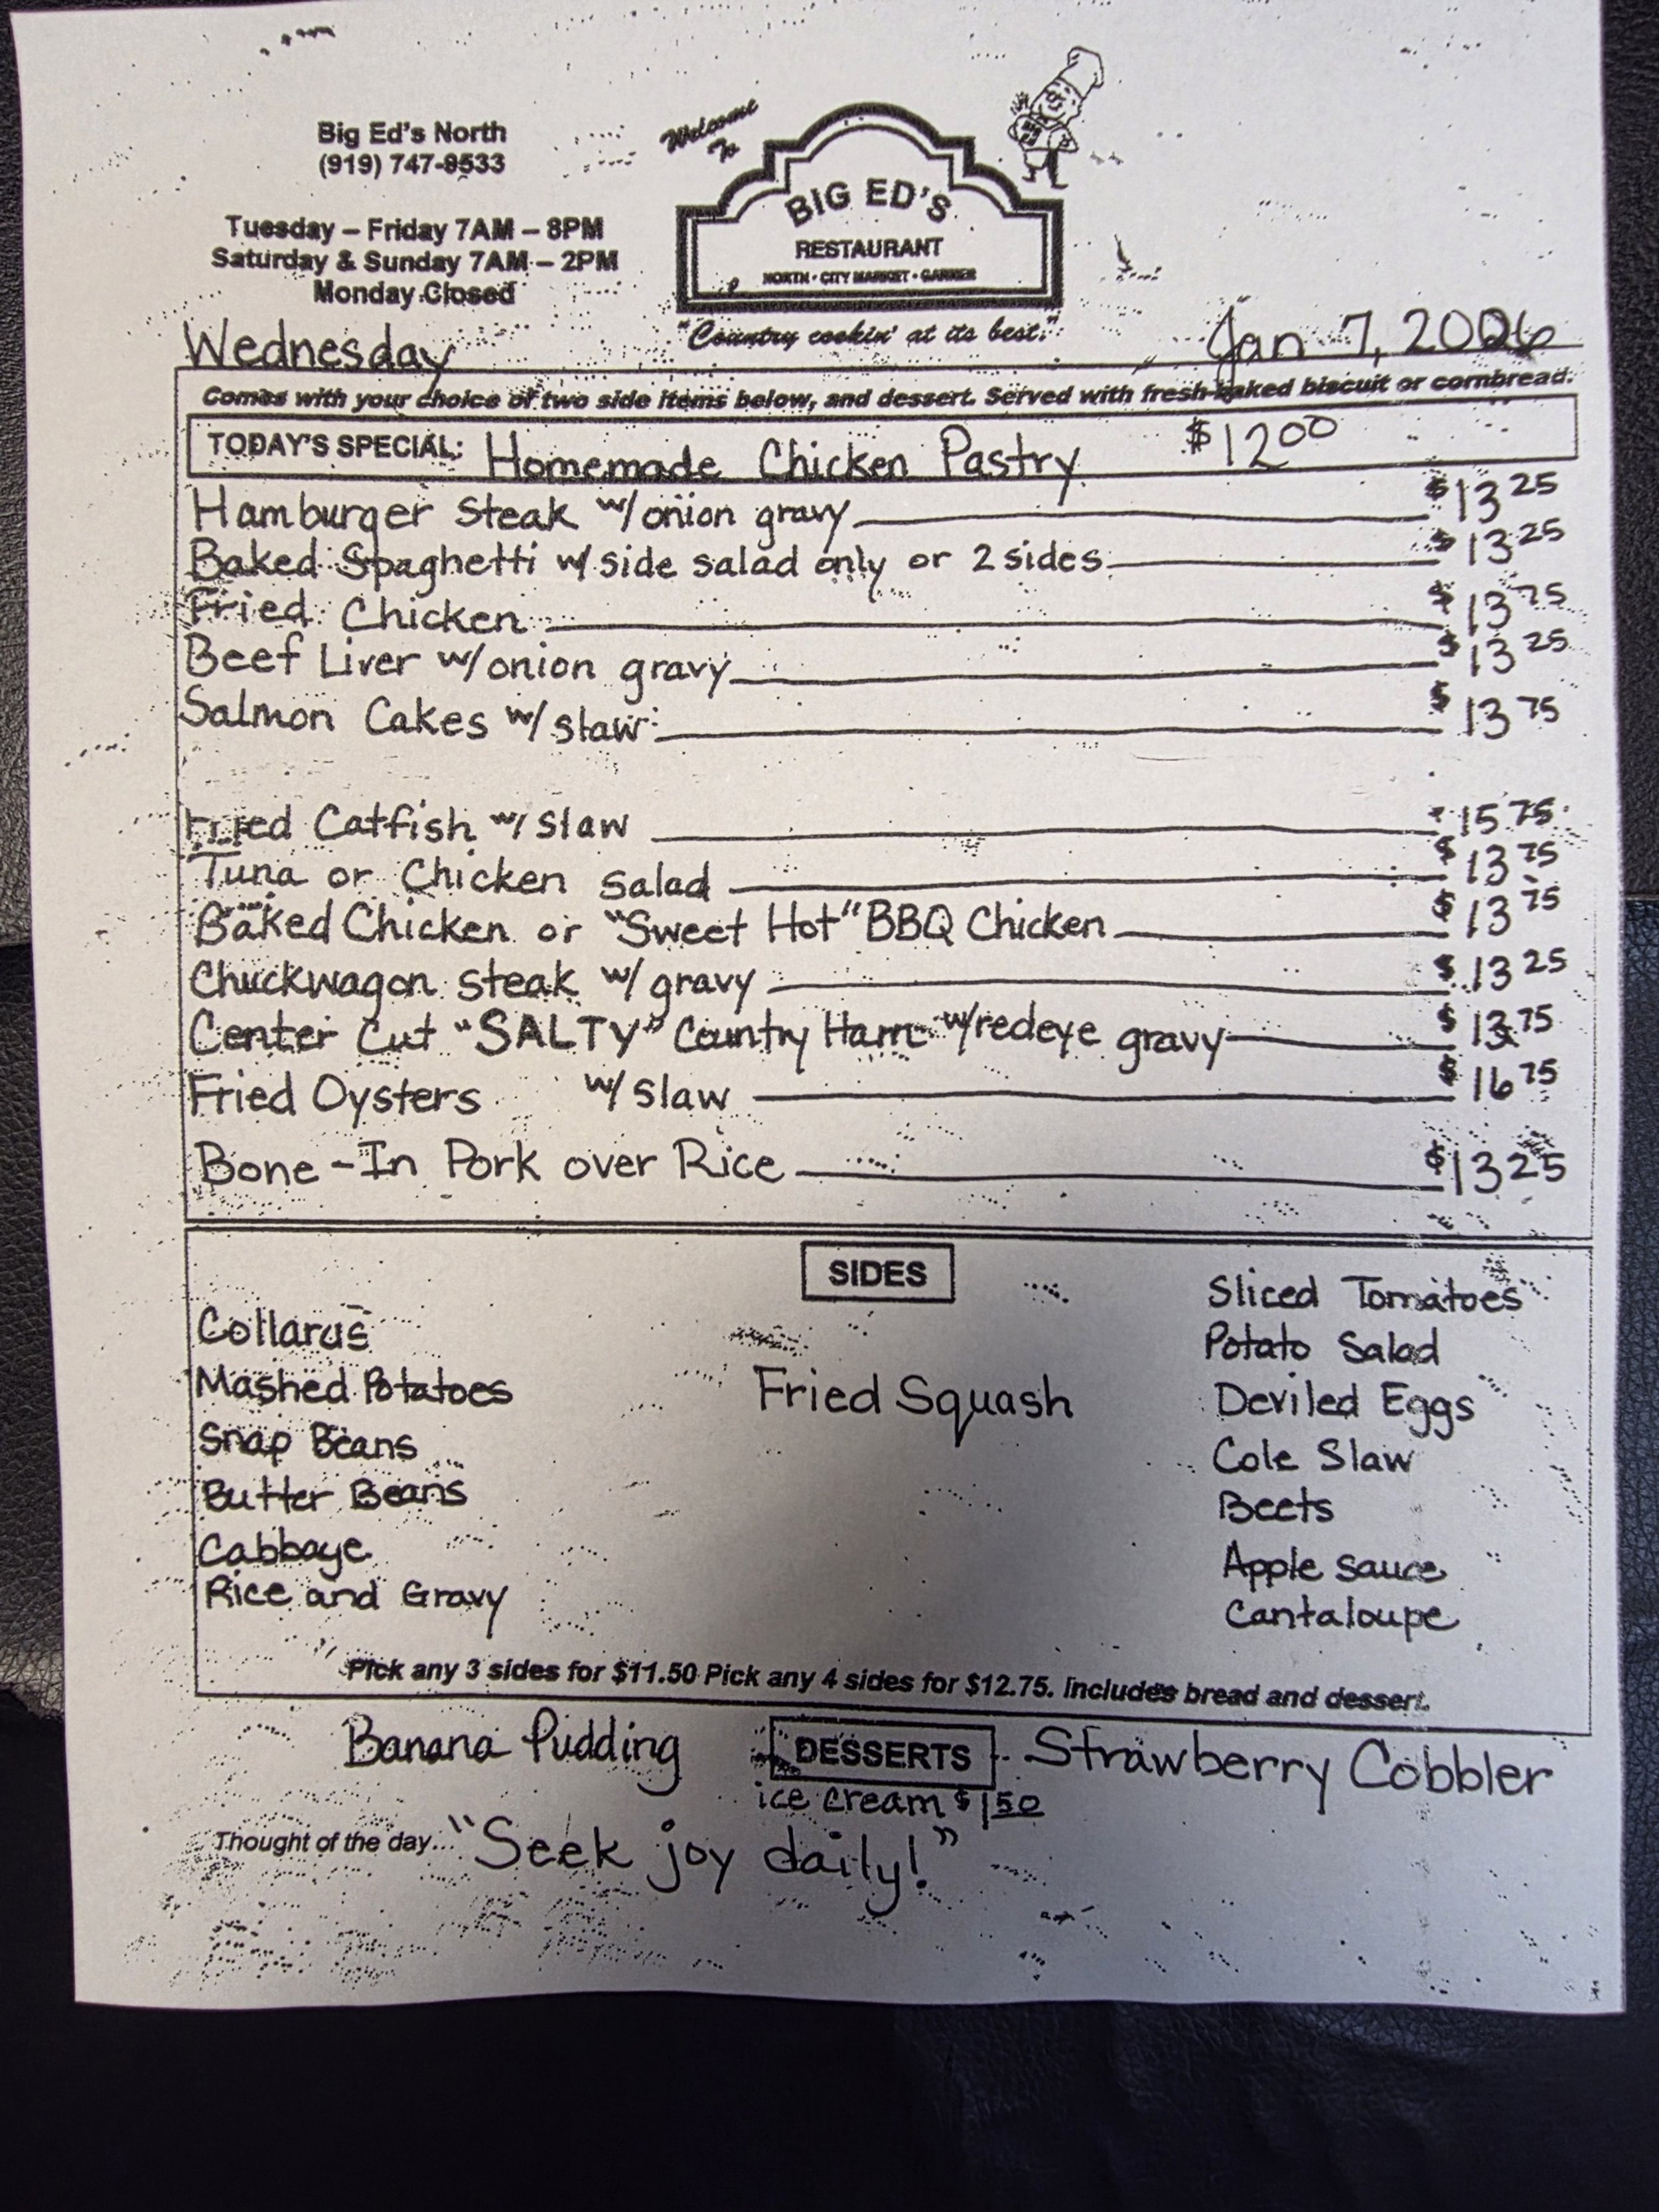 Big Ed's North
(919) 747-9533
Tuesday – Friday 7AM – 8PM
Saturday & Sunday 7AM – 2PM
Monday Closed
Welcome
To
BIG ED'S
RESTAURANT
NORTH • CITY MARKET • GARNER
"Country cookin' at its best."
Wednesday
Jan 7, 2026
Comes with your choice of two side items below, and dessert. Served with fresh-baked biscuit or cornbread.
TODAY'S SPECIAL: Homemade Chicken Pastry $12.00
Hamburger Steak w/onion gravy $13 25
Baked Spaghetti w/ side salad only or 2 sides $13 25
Fried Chicken $13 75
Beef Liver w/onion gravy $13 25
Salmon Cakes w/ slaw $13 75
Fried Catfish w/ slaw 15 75
Tuna or Chicken Salad $13 75
Baked Chicken or "Sweet Hot" BBQ Chicken $13 75
Chuckwagon Steak w/ gravy $13 25
Center Cut "SALTY" Country Ham w/redeye gravy $13 75
Fried Oysters w/ slaw $16 75
Bone-In Pork over Rice $13 25
SIDES
Collards
Mashed Potatoes
Snap Beans
Butter Beans
Cabbage
Rice and Gravy
Fried Squash
Sliced Tomatoes
Potato Salad
Deviled Eggs
Cole Slaw
Beets
Apple Sauce
Cantaloupe
Pick any 3 sides for $11.50 Pick any 4 sides for $12.75. Includes bread and dessert.
Banana Pudding
DESSERTS
Strawberry Cobbler
ice cream $1 50
Thought of the day... "Seek joy daily!"